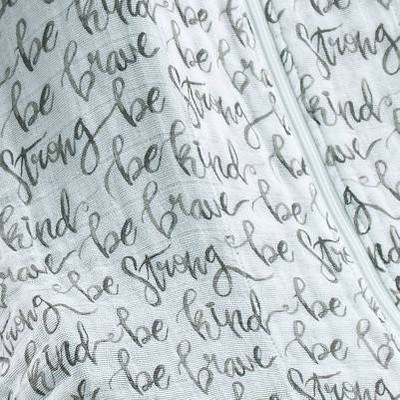 be kind
be brave be
Strong be
be kind be
kind be brave be
brave be Strong be Stro
Strong be kind be
kind be brave be
be Strong
Strong
be kind
ave be